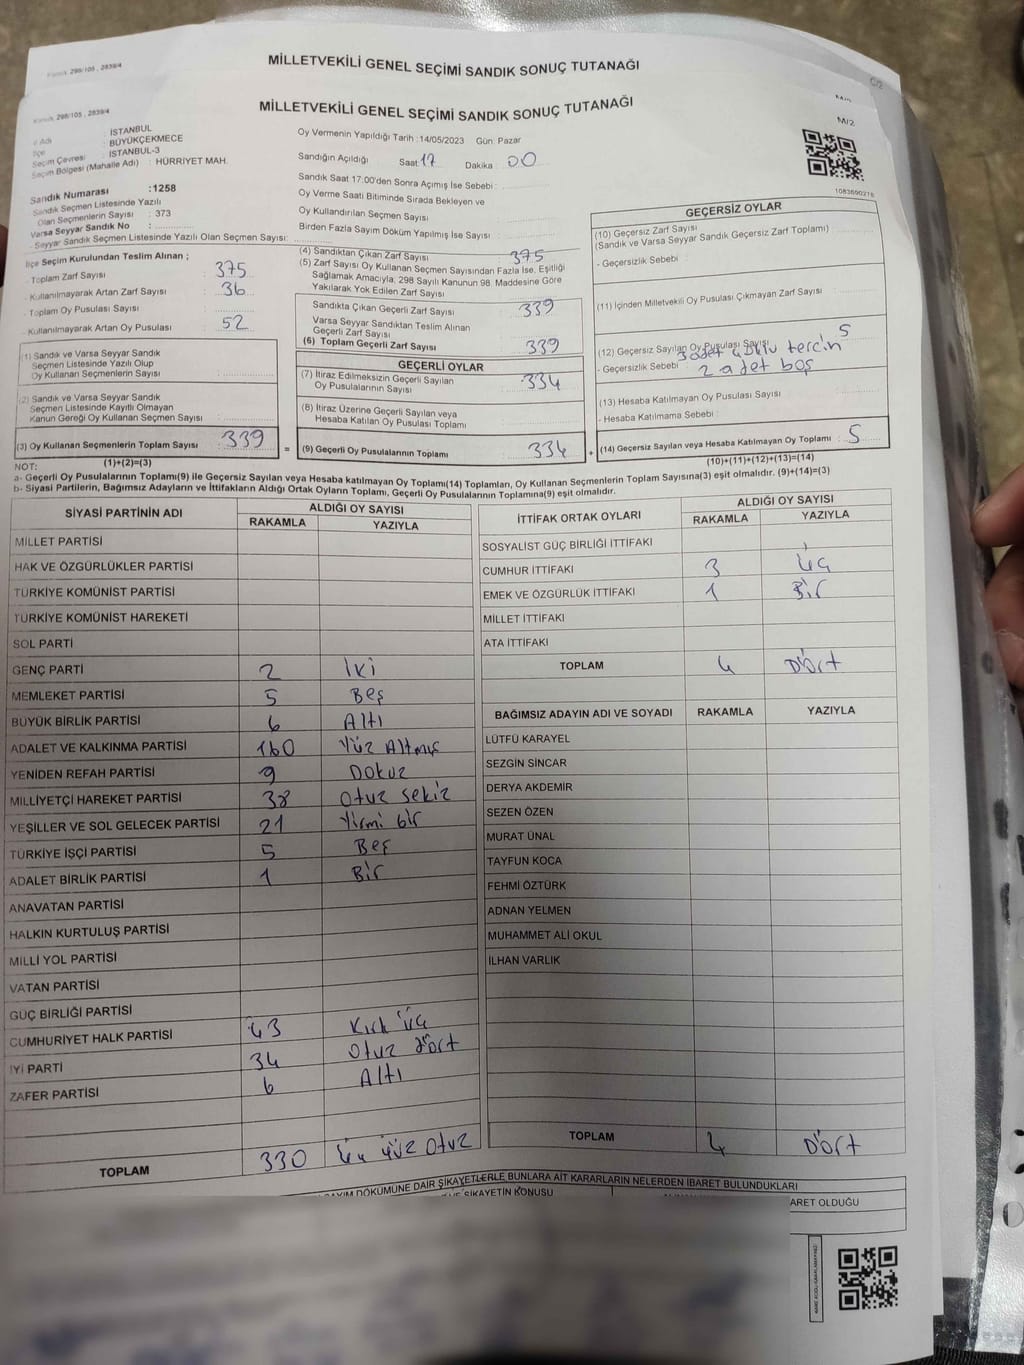 Kanun: 298/105 , 2839/4
MİLLETVEKİLİ GENEL SEÇİMİ SANDIK SONUÇ TUTANAĞI
Kanun: 298/105 , 2839/4
MİLLETVEKİLİ GENEL SEÇİMİ SANDIK SONUÇ TUTANAĞI
M/2
İl Adı : İSTANBUL
İlçe : BÜYÜKÇEKMECE
Seçim Çevresi : İSTANBUL-3
Seçim Bölgesi (Mahalle Adı) : HÜRRİYET MAH.
Sandık Numarası :1258
Sandık Seçmen Listesinde Yazılı
Olan Seçmenlerin Sayısı : 373
Varsa Seyyar Sandık No :
- Seyyar Sandık Seçmen Listesinde Yazılı Olan Seçmen Sayısı:
Oy Vermenin Yapıldığı Tarih :14/05/2023 Gün: Pazar
Sandığın Açıldığı Saat: 17 Dakika : 00
Sandık Saat 17:00'den Sonra Açımış İse Sebebi :
Oy Verme Saati Bitiminde Sırada Bekleyen ve
Oy Kullandırılan Seçmen Sayısı
Birden Fazla Sayım Döküm Yapılmış İse Sayısı :
1083690216
İlçe Seçim Kurulundan Teslim Alınan ;
- Toplam Zarf Sayısı : 375
- Kullanılmayarak Artan Zarf Sayısı : 36
- Toplam Oy Pusulası Sayısı :
- Kullanılmayarak Artan Oy Pusulası : 52
(1) Sandık ve Varsa Seyyar Sandık
Seçmen Listesinde Yazılı Olup
Oy Kullanan Seçmenlerin Sayısı :
(2) Sandık ve Varsa Seyyar Sandık
Seçmen Listesinde Kayıtlı Olmayan
Kanun Gereği Oy Kullanan Seçmen Sayısı :
(3) Oy Kullanan Seçmenlerin Toplam Sayısı : 339
(1)+(2)=(3)
(4) Sandıktan Çıkan Zarf Sayısı : 375
(5) Zarf Sayısı Oy Kullanan Seçmen Sayısından Fazla İse, Eşitliği
Sağlamak Amacıyla, 298 Sayılı Kanunun 98. Maddesine Göre
Yakılarak Yok Edilen Zarf Sayısı :
Sandıkta Çıkan Geçerli Zarf Sayısı : 339
Varsa Seyyar Sandıktan Teslim Alınan
Geçerli Zarf Sayısı
(6) Toplam Geçerli Zarf Sayısı : 339
GEÇERLİ OYLAR
(7) İtiraz Edilmeksizin Geçerli Sayılan
Oy Pusulalarının Sayısı : 334
(8) İtiraz Üzerine Geçerli Sayılan veya
Hesaba Katılan Oy Pusulası Toplamı :
= (9) Geçerli Oy Pusulalarının Toplamı : 334
GEÇERSİZ OYLAR
(10) Geçersiz Zarf Sayısı
(Sandık ve Varsa Seyyar Sandık Geçersiz Zarf Toplamı) :
- Geçersizlik Sebebi :
(11) İçinden Milletvekili Oy Pusulası Çıkmayan Zarf Sayısı :
(12) Geçersiz Sayılan Oy Pusulası Sayısı 5
- Geçersizlik Sebebi : 3 adet çoklu tercih
2 adet boş
(13) Hesaba Katılmayan Oy Pusulası Sayısı :
- Hesaba Katılmama Sebebi :
+ (14) Geçersiz Sayılan veya Hesaba Katılmayan Oy Toplamı : 5
(10)+(11)+(12)+(13)=(14)
NOT:
a- Geçerli Oy Pusulalarının Toplamı(9) ile Geçersiz Sayılan veya Hesaba katılmayan Oy Toplamı(14) Toplamları, Oy Kullanan Seçmenlerin Toplam Sayısına(3) eşit olmalıdır. (9)+(14)=(3)
b- Siyasi Partilerin, Bağımsız Adayların ve İttifakların Aldığı Ortak Oyların Toplamı, Geçerli Oy Pusulalarının Toplamına(9) eşit olmalıdır.
SİYASİ PARTİNİN ADI ALDIĞI OY SAYISI
RAKAMLA YAZIYLA
MİLLET PARTİSİ
HAK VE ÖZGÜRLÜKLER PARTİSİ
TÜRKİYE KOMÜNİST PARTİSİ
TÜRKİYE KOMÜNİST HAREKETİ
SOL PARTİ
GENÇ PARTİ 2 İki
MEMLEKET PARTİSİ 5 Beş
BÜYÜK BİRLİK PARTİSİ 6 Altı
ADALET VE KALKINMA PARTİSİ 160 Yüz Altmış
YENİDEN REFAH PARTİSİ 9 Dokuz
MİLLİYETÇİ HAREKET PARTİSİ 38 Otuz sekiz
YEŞİLLER VE SOL GELECEK PARTİSİ 21 Yirmi bir
TÜRKİYE İŞÇİ PARTİSİ 5 Beş
ADALET BİRLİK PARTİSİ 1 Bir
ANAVATAN PARTİSİ
HALKIN KURTULUŞ PARTİSİ
MİLLİ YOL PARTİSİ
VATAN PARTİSİ
GÜÇ BİRLİĞİ PARTİSİ
CUMHURİYET HALK PARTİSİ 43 Kırk üç
İYİ PARTİ 34 Otuz dört
ZAFER PARTİSİ 6 Altı
TOPLAM 330 Üç yüz Otuz
İTTİFAK ORTAK OYLARI ALDIĞI OY SAYISI
RAKAMLA YAZIYLA
SOSYALİST GÜÇ BİRLİĞİ İTTİFAKI
CUMHUR İTTİFAKI 3 üç
EMEK VE ÖZGÜRLÜK İTTİFAKI 1 Bir
MİLLET İTTİFAKI
ATA İTTİFAKI
TOPLAM 4 Dört
BAĞIMSIZ ADAYIN ADI VE SOYADI RAKAMLA YAZIYLA
LÜTFÜ KARAYEL
SEZGİN SİNCAR
DERYA AKDEMİR
SEZEN ÖZEN
MURAT ÜNAL
TAYFUN KOCA
FEHMİ ÖZTÜRK
ADNAN YELMEN
MUHAMMET ALİ OKUL
İLHAN VARLIK
TOPLAM 4 Dört
SAYIM DÖKÜMÜNE DAİR ŞİKAYETLERLE BUNLARA AİT KARARLARIN NELERDEN İBARET BULUNDUKLARI
ŞİKAYETİN KONUSU
İBARET OLDUĞU